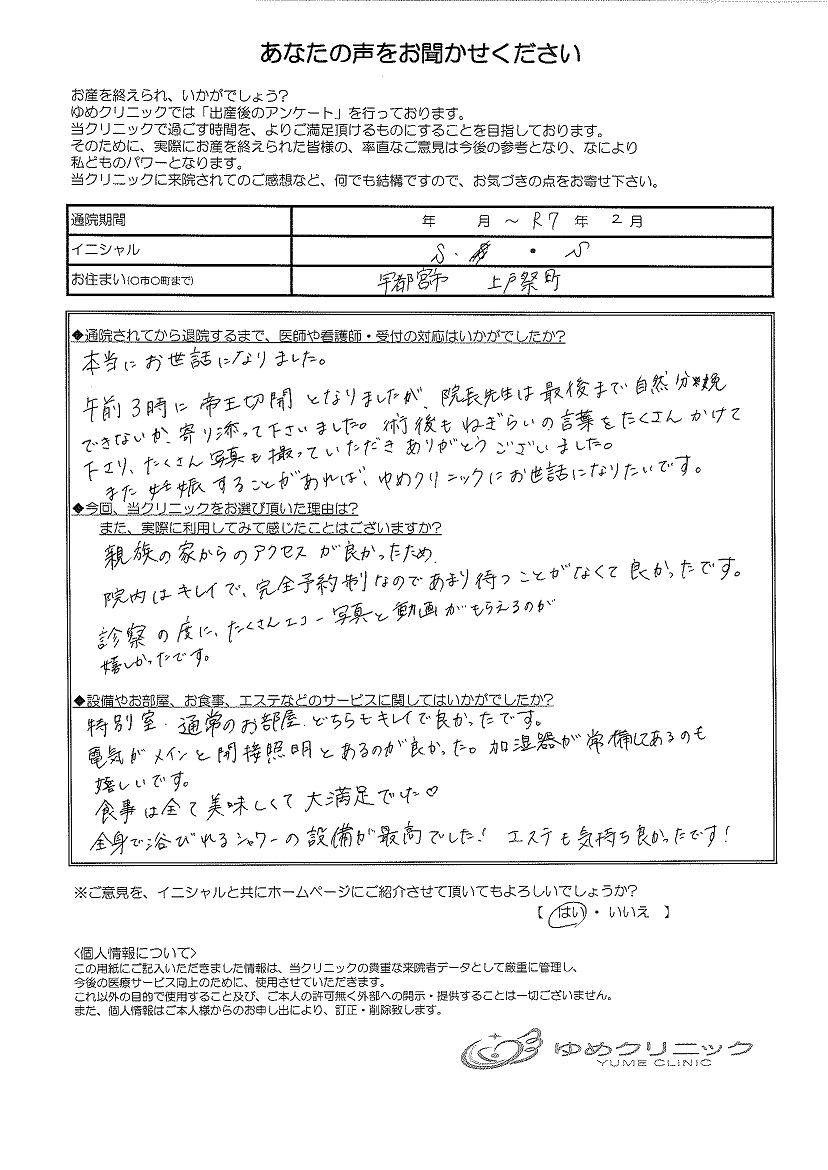 あなたの声をお聞かせください
お産を終えられ、いかがでしょう?
ゆめクリニックでは「出産後のアンケート」を行っております。
当クリニックで過ごす時間を、よりご満足頂けるものにすることを目指しております。
そのために、実際にお産を終えられた皆様の、率直なご意見は今後の参考となり、なにより
私どものパワーとなります。
当クリニックに来院されてのご感想など、何でも結構ですので、お気づきの点をお寄せ下さい。
通院期間 年 月 ~ R7 年 2 月
イニシャル S. ・ S
お住まい(○市○町まで) 宇都宮市 上戸祭町
◆通院されてから退院するまで、医師や看護師・受付の対応はいかがでしたか?
本当にお世話になりました。
午前3時に帝王切開となりましたが、院長先生は最後まで自然分娩
できないか、寄り添って下さいました。術後もねぎらいの言葉をたくさんかけて
下さり、たくさん写真も撮っていただきありがとうございました。
また妊娠することがあれば、ゆめクリニックにお世話になりたいです。
◆今回、当クリニックをお選び頂いた理由は?
また、実際に利用してみて感じたことはございますか?
親族の家からのアクセスが良かったため。
院内はキレイで、完全予約制なのであまり待つことがなくて良かったです。
診察の度に、たくさんエコー写真と動画がもらえるのが
嬉しかったです。
◆設備やお部屋、お食事、エステなどのサービスに関してはいかがでしたか?
特別室・通常のお部屋、どちらもキレイで良かったです。
電気がメインと間接照明とあるのが良かった。加湿器が常備してあるのも
嬉しいです。
食事は全て美味しくて大満足でした♡
全身で浴びれるシャワーの設備が最高でした! エステも気持ち良かったです!
※ご意見を、イニシャルと共にホームページにご紹介させて頂いてもよろしいでしょうか?
【 はい ・ いいえ 】
<個人情報について>
この用紙にご記入いただきました情報は、当クリニックの貴重な来院者データとして厳重に管理し、
今後の医療サービス向上のために、使用させていただきます。
これ以外の目的で使用すること及び、ご本人の許可無く外部への開示・提供することは一切ございません。
また、個人情報はご本人様からのお申し出により、訂正・削除致します。
ゆめクリニック
YUME CLINIC